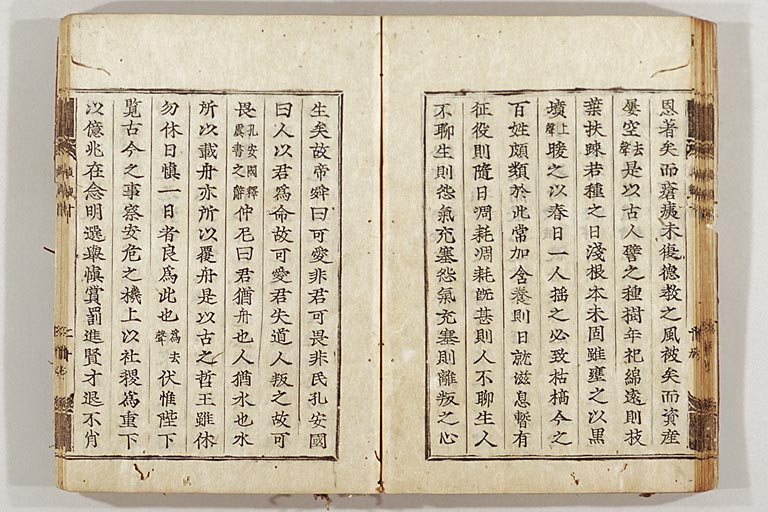 恩著矣而瘡痍未復德教之風被矣而資産
屢空去聲是以古人譬之種樹年祀綿遠則枝
葉扶疎若種之日淺根本未固雖壅之以黒
墳上聲暖之以春日一人揺之必致枯槁今之
百姓頗類於此常加含養則日就滋息暫有
征役則隨日凋耗凋耗旣甚則人不聊生人
不聊生則怨氣充塞怨氣充塞則離叛之心
生矣故帝舜曰可愛非君可畏非民孔安國
曰人以君爲命故可愛君失道人叛之故可
畏孔安國釋虞書之辭仲尼曰君猶舟也人猶水也水
所以載舟亦所以覆舟是以古之哲王雖休
勿休日慎一日者良爲此也爲去聲伏惟陛下
覽古今之事察安危之機上以社稷爲重下
以億兆在念明選舉慎賞罰進賢才退不肖